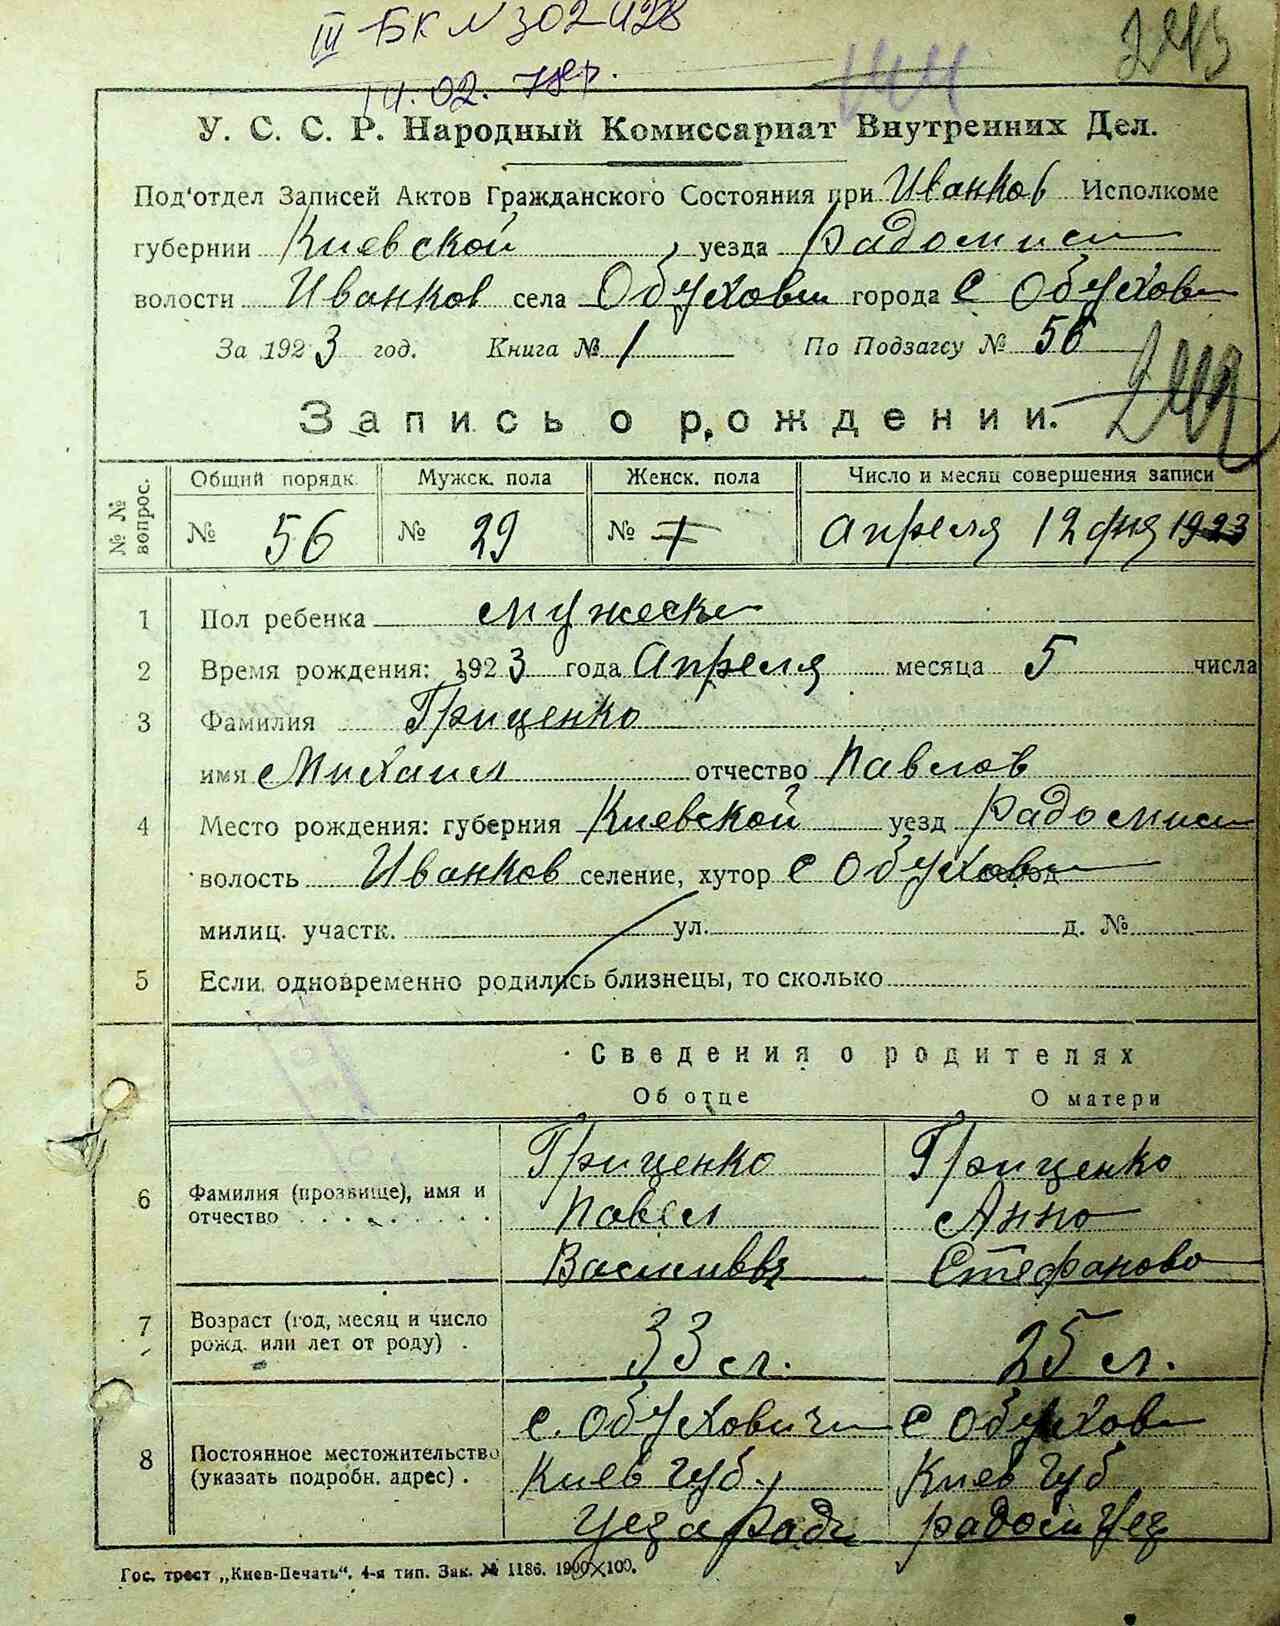 III БК № 302428
14.02.78г.
У. С. С. Р. Народный Комиссариат Внутренних Дел.
Под'отдел Записей Актов Гражданского Состояния при Иванков Исполкоме
губернии Киевской уезда Радомысл
волости Иванков села Обухови города с Обухов
За 1923 год. Книга № 1 По Подзагсу № 56
Запись о рождении.
№ № вопрос. Общий порядк. Мужск. пола Женск. пола Число и месяц совершения записи
№ 56 № 29 № Апреля 12 дня 1923
1 Пол ребенка мужеск
2 Время рождения: 1923 года Апреля месяца 5 числа
3 Фамилия Гриценко
имя Михаил отчество Павлов
4 Место рождения: губерния Киевской уезд Радомысл
волость Иванков селение, хутор с Обухов город
милиц. участк. ул. д. №
5 Если одновременно родились близнецы, то сколько
Сведения о родителях
Об отце О матери
6 Фамилия (прозвище), имя и отчество
Гриценко Гриценко
Павел Анна
Васильев Стефанова
7 Возраст (год, месяц и число рожд. или лет от роду) .
33 л. 25 л.
8 Постоянное местожительство (указать подробн. адрес) .
с. Обуховичи с Обухов
Киев губ. Киев губ
уезда Радо радом уез
Гос. трест „Киев-Печать“, 4-я тип. Зак. № 1186. 1900×100.